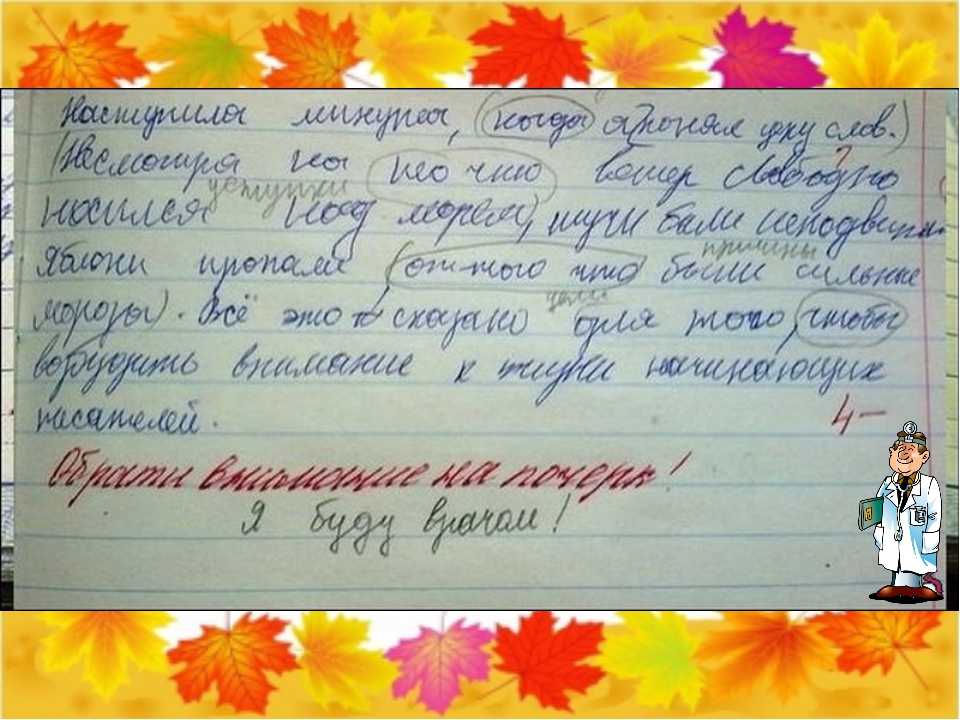 Наступила минута, (когда я понял цену слов.)
(Несмотря на то что ветер свободно
уступки
носился над морем), тучи были неподвижны.
причины
Яблони пропали (оттого что были сильные
цели
морозы). Всё это сказано для того, чтобы
возбудить внимание к жизни начинающих
писателей.
4-
Обрати внимание на почерк!
Я буду врачом!